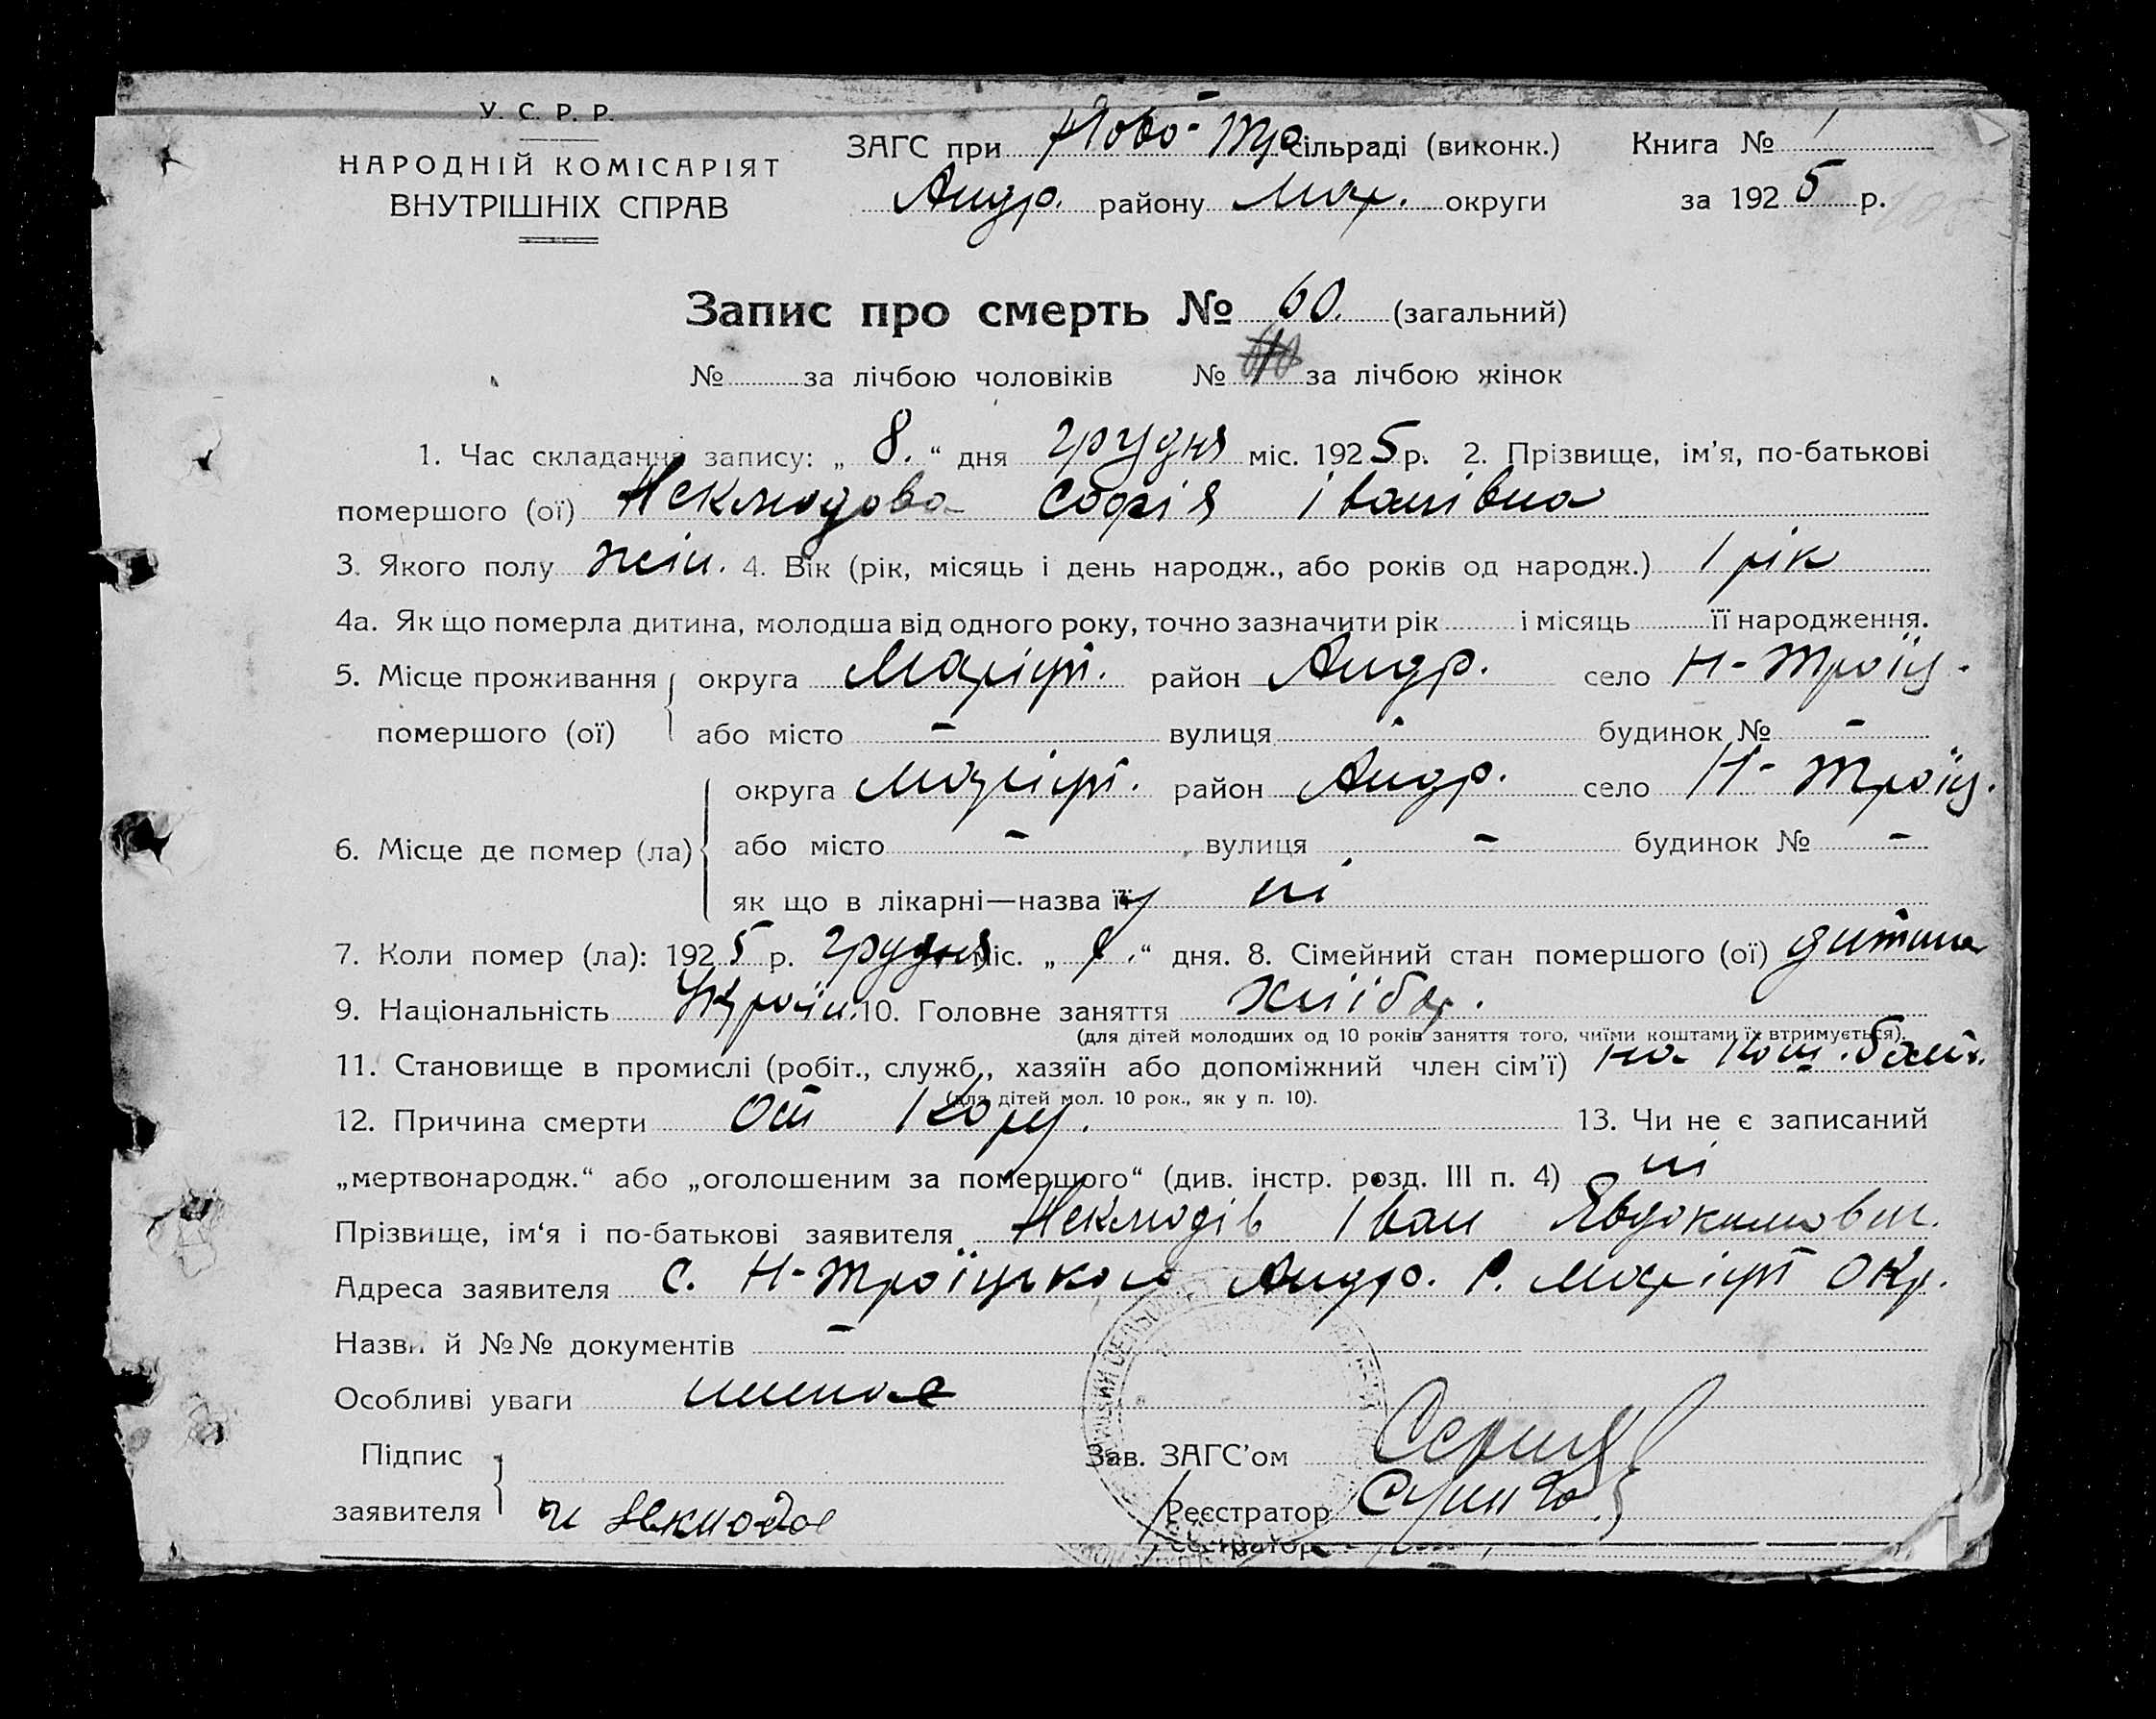 У. С. Р. Р.
НАРОДНІЙ КОМІСАРІЯТ
ВНУТРІШНІХ СПРАВ
ЗАГС при Ново-Тро сільраді (виконк.)
Андр. району Мар. округи
Книга № 1
за 1925 р.
Запис про смерть № 60. (загальний)
№ за лічбою чоловіків № за лічбою жінок
1. Час складання запису: „ 8. “ дня грудня міс. 1925 р. 2. Прізвище, ім’я, по-батькові
помершого (ої) Неклюдова Софія Іванівна
3. Якого полу жін. 4. Вік (рік, місяць і день народж., або років од народж.) 1 рік
4а. Як що померла дитина, молодша від одного року, точно зазначити рік і місяць її народження.
5. Місце проживання помершого (ої) округа Маріуп. район Андр. село Н-Троїц.
або місто – вулиця - будинок № –
6. Місце де помер (ла) округа Маріуп. район Андр. село Н-Троїц.
або місто – вулиця – будинок № –
як що в лікарні—назва її ні
7. Коли помер (ла): 1925 р. грудня міс. „ “ дня. 8. Сімейний стан помершого (ої) дитина
9. Національність Україн. 10. Головне заняття хлібор.
(для дітей молодших од 10 років заняття того, чиїми коштами їх втримується).
11. Становище в промислі (робіт., служб., хазяїн або допоміжний член сім’ї) на кош. батьк.
(для дітей мол. 10 рок., як у п. 10).
12. Причина смерти от кору. 13. Чи не є записаний
„мертвонародж.“ або „оголошеним за помершого“ (див. інстр. розд. III п. 4) ні
Прізвище, ім‘я і по-батькові заявителя Неклюдів Іван Явдокимович.
Адреса заявителя с. Н-Троїцького Андр. р. Маріуп окр.
Назви й №№ документів –
Особливі уваги немає
Підпис заявителя и неклюдов
Зав. ЗАГС’ом
Реєстратор